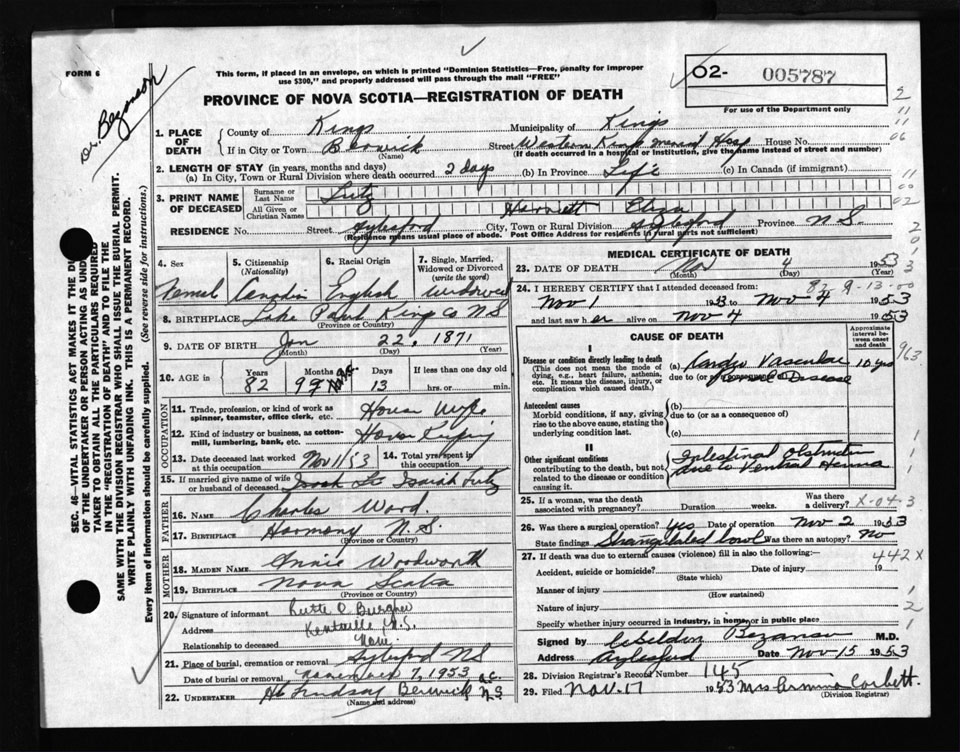 FORM 6
This form, if placed in an envelope, on which is printed "Dominion Statistics—Free, penalty for improper
use $300," and properly addressed will pass through the mail "FREE"
O2- 005787
For use of the Department only
PROVINCE OF NOVA SCOTIA—REGISTRATION OF DEATH
Dr. Bezanson
SEC. 46—VITAL STATISTICS ACT MAKES IT THE DU
OF THE UNDERTAKER OR PERSON ACTING AS UND
TAKER TO OBTAIN ALL THE PARTICULARS REQUIRED
IN THE "REGISTRATION OF DEATH" AND TO FILE THE
SAME WITH THE DIVISION REGISTRAR WHO SHALL ISSUE THE BURIAL PERMIT.
WRITE PLAINLY WITH UNFADING INK. THIS IS A PERMANENT RECORD.
Every item of information should be carefully supplied. (See reverse side for instructions.)
1. PLACE OF DEATH
County of Kings Municipality of Kings
If in City or Town Berwick Street Western Kings Hosp House No.
(Name) (If death occurred in a hospital or institution, give the name instead of street and number)
2. LENGTH OF STAY (in years, months and days)
(a) In City, Town or Rural Division where death occurred 2 days (b) In Province Life (c) In Canada (if immigrant)
3. PRINT NAME OF DECEASED
Surname or Last Name Lutz
All Given or Christian Names Harriett Eliza
RESIDENCE No. Street Aylesford City, Town or Rural Division Aylesford Province N.S.
(Residence means usual place of abode. Post Office Address for residents in rural parts not sufficient)
4. Sex Femal
5. Citizenship (Nationality) Canadin
6. Racial Origin English
7. Single, Married, Widowed or Divorced (write the word) widowed
8. BIRTHPLACE Lake Paul Kings Co NS
(Province or Country)
9. DATE OF BIRTH Jan 22, 1871
(Month) (Day) (Year)
10. AGE Years 82 Months 9 Days 13 If less than one day old
hrs. or min.
OCCUPATION
11. Trade, profession, or kind of work as spinner, teamster, office clerk, etc. House Wife
12. Kind of industry or business, as cotton-mill, lumbering, bank, etc. House Keeping
13. Date deceased last worked at this occupation Nov 1/53 14. Total yrs. spent in this occupation
15. If married give name of wife or husband of deceased Isaiah Lutz
FATHER
16. NAME Charles Ward.
17. BIRTHPLACE Harmony N.S.
(Province or Country)
MOTHER
18. MAIDEN NAME Annie Woodworth
19. BIRTHPLACE Nova Scotia
(Province or Country)
20. Signature of informant
Address Kentville N.S.
Relationship to deceased None.
21. Place of burial, cremation or removal Aylesford NS
Date of burial or removal November 7, 1953
22. UNDERTAKER Lindsay Berwick N.S.
(Name and address)
MEDICAL CERTIFICATE OF DEATH
23. DATE OF DEATH Nov 4 1953
(Month) (Day) (Year)
82-9-13-00
24. I HEREBY CERTIFY that I attended deceased from:
Nov 1 1953 to Nov 4 1953
and last saw her alive on Nov 4 1953
CAUSE OF DEATH
Approximate interval between onset and death
I
Disease or condition directly leading to death
(This does not mean the mode of dying, e.g., heart failure, asthenia, etc. It means the disease, injury, or complication which caused death.)
(a) Cardio Vascular Disease 10 yrs
due to (or as a consequence of)
Antecedent causes
Morbid conditions, if any, giving rise to the above cause, stating the underlying condition last.
(b)
due to (or as a consequence of)
(c)
II
Other significant conditions
contributing to the death, but not related to the disease or condition causing it.
Intestinal Obstruction
due to Ventral Hernia
25. If a woman, was the death associated with pregnancy? Duration weeks. Was there a delivery? X-04-3
26. Was there surgical operation? yes Date of operation Nov 2 1953
State findings Strangulated bowl Was there an autopsy? No
27. If death was due to external causes (violence) fill in also the following:—
442X
Accident, suicide or homicide? Date of injury 19
(State which)
Manner of injury
(How sustained)
Nature of injury
Specify whether injury occurred in industry, in home, or in public place
Signed by Bezanson M.D.
Address Aylesford Date Nov 15 1953
28. Division Registrar's Record Number 145
29. Filed Nov. 17 1953 Mrs Ermina Corbett.
(Division Registrar)